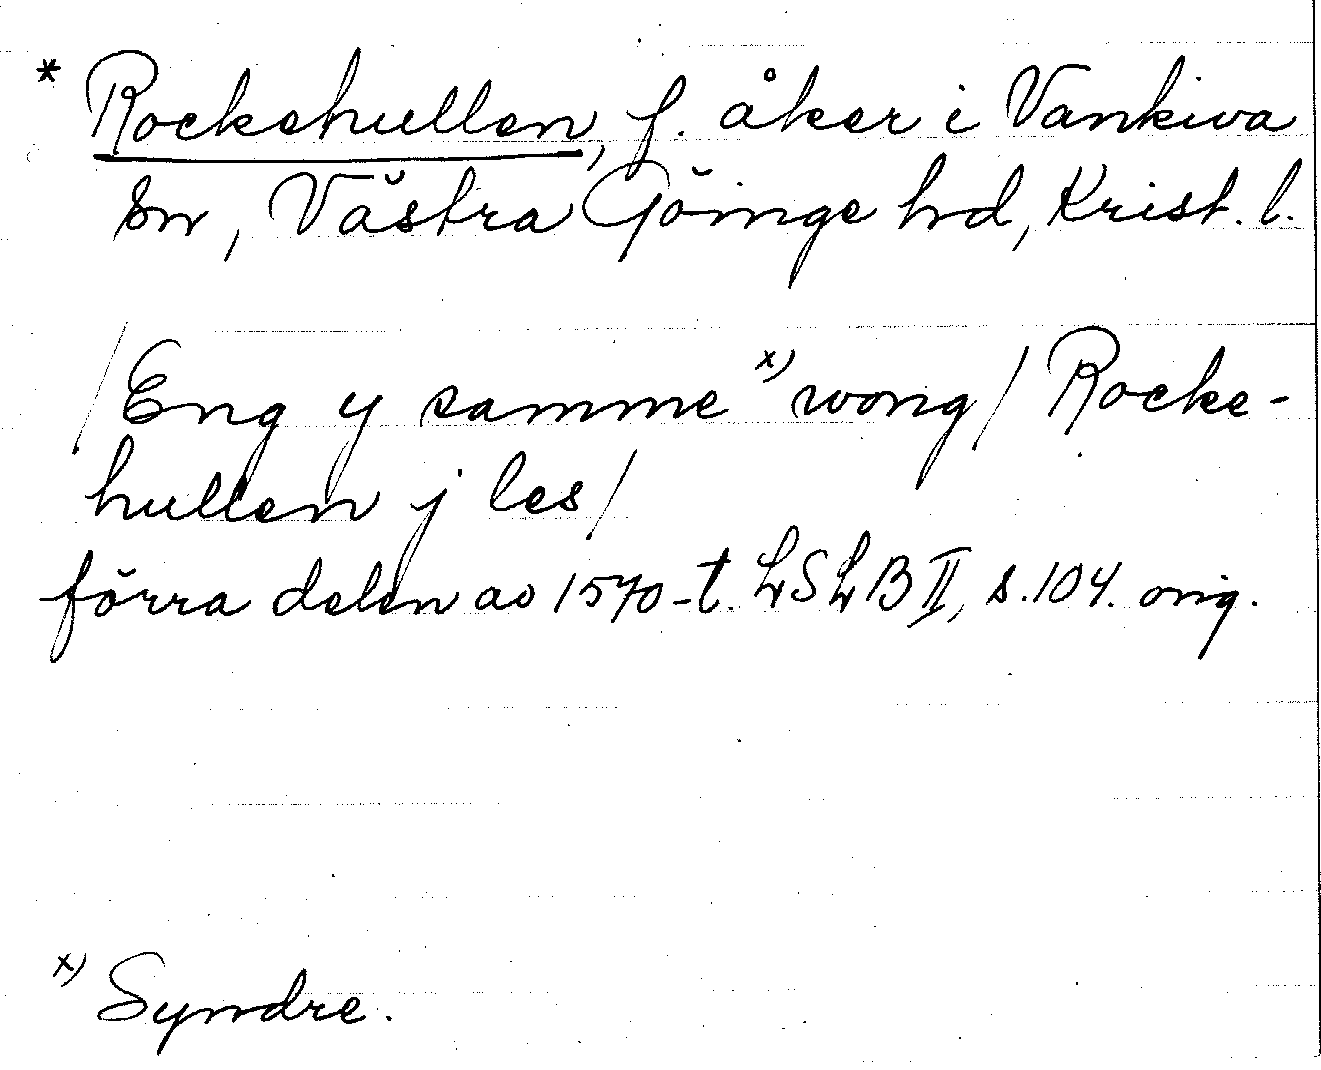 * Rockehullen, f. åker i Vankiva
sn, Västra Göinge hd, Krist. l.
/Eng y samme x) wong/ Rocke-
hullen j les/
förra delen av 1570-t. LSLB II, s. 104. orig.
x) Syndre.